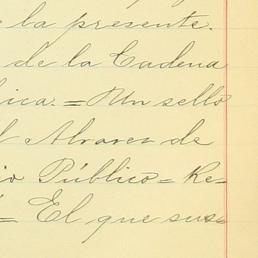 la presente.
de la Cadena
lica. = Un sello
Alvarez de
io Público = Re-
= El que sus-